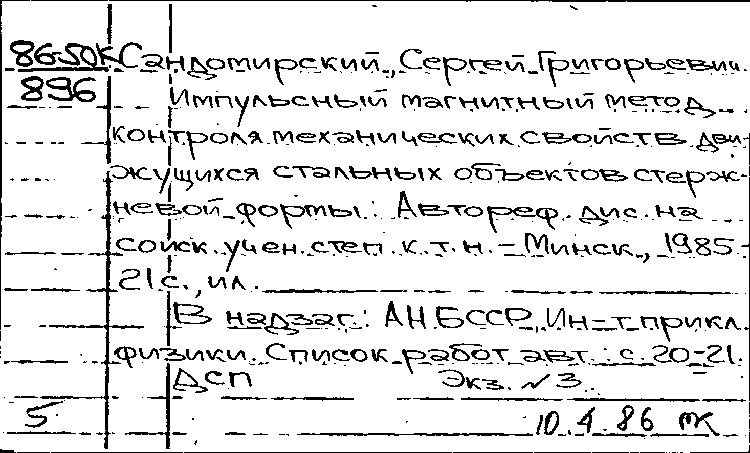 86-50К Сандомирский, Сергей Григорьевич.
896 Импульсный магнитный метод
контроля механических свойств дви-
жущихся стальных объектов стерж-
невой формы: Автореф. дис. на
соиск. учен. степ. к.т.н. - Минск, 1985.-
21с., ил.
В надзаг: АН БССР, Ин-т прикл.
физики. Список работ авт.: с. 20-21.
ДСП Экз. №3
5 10.4.86